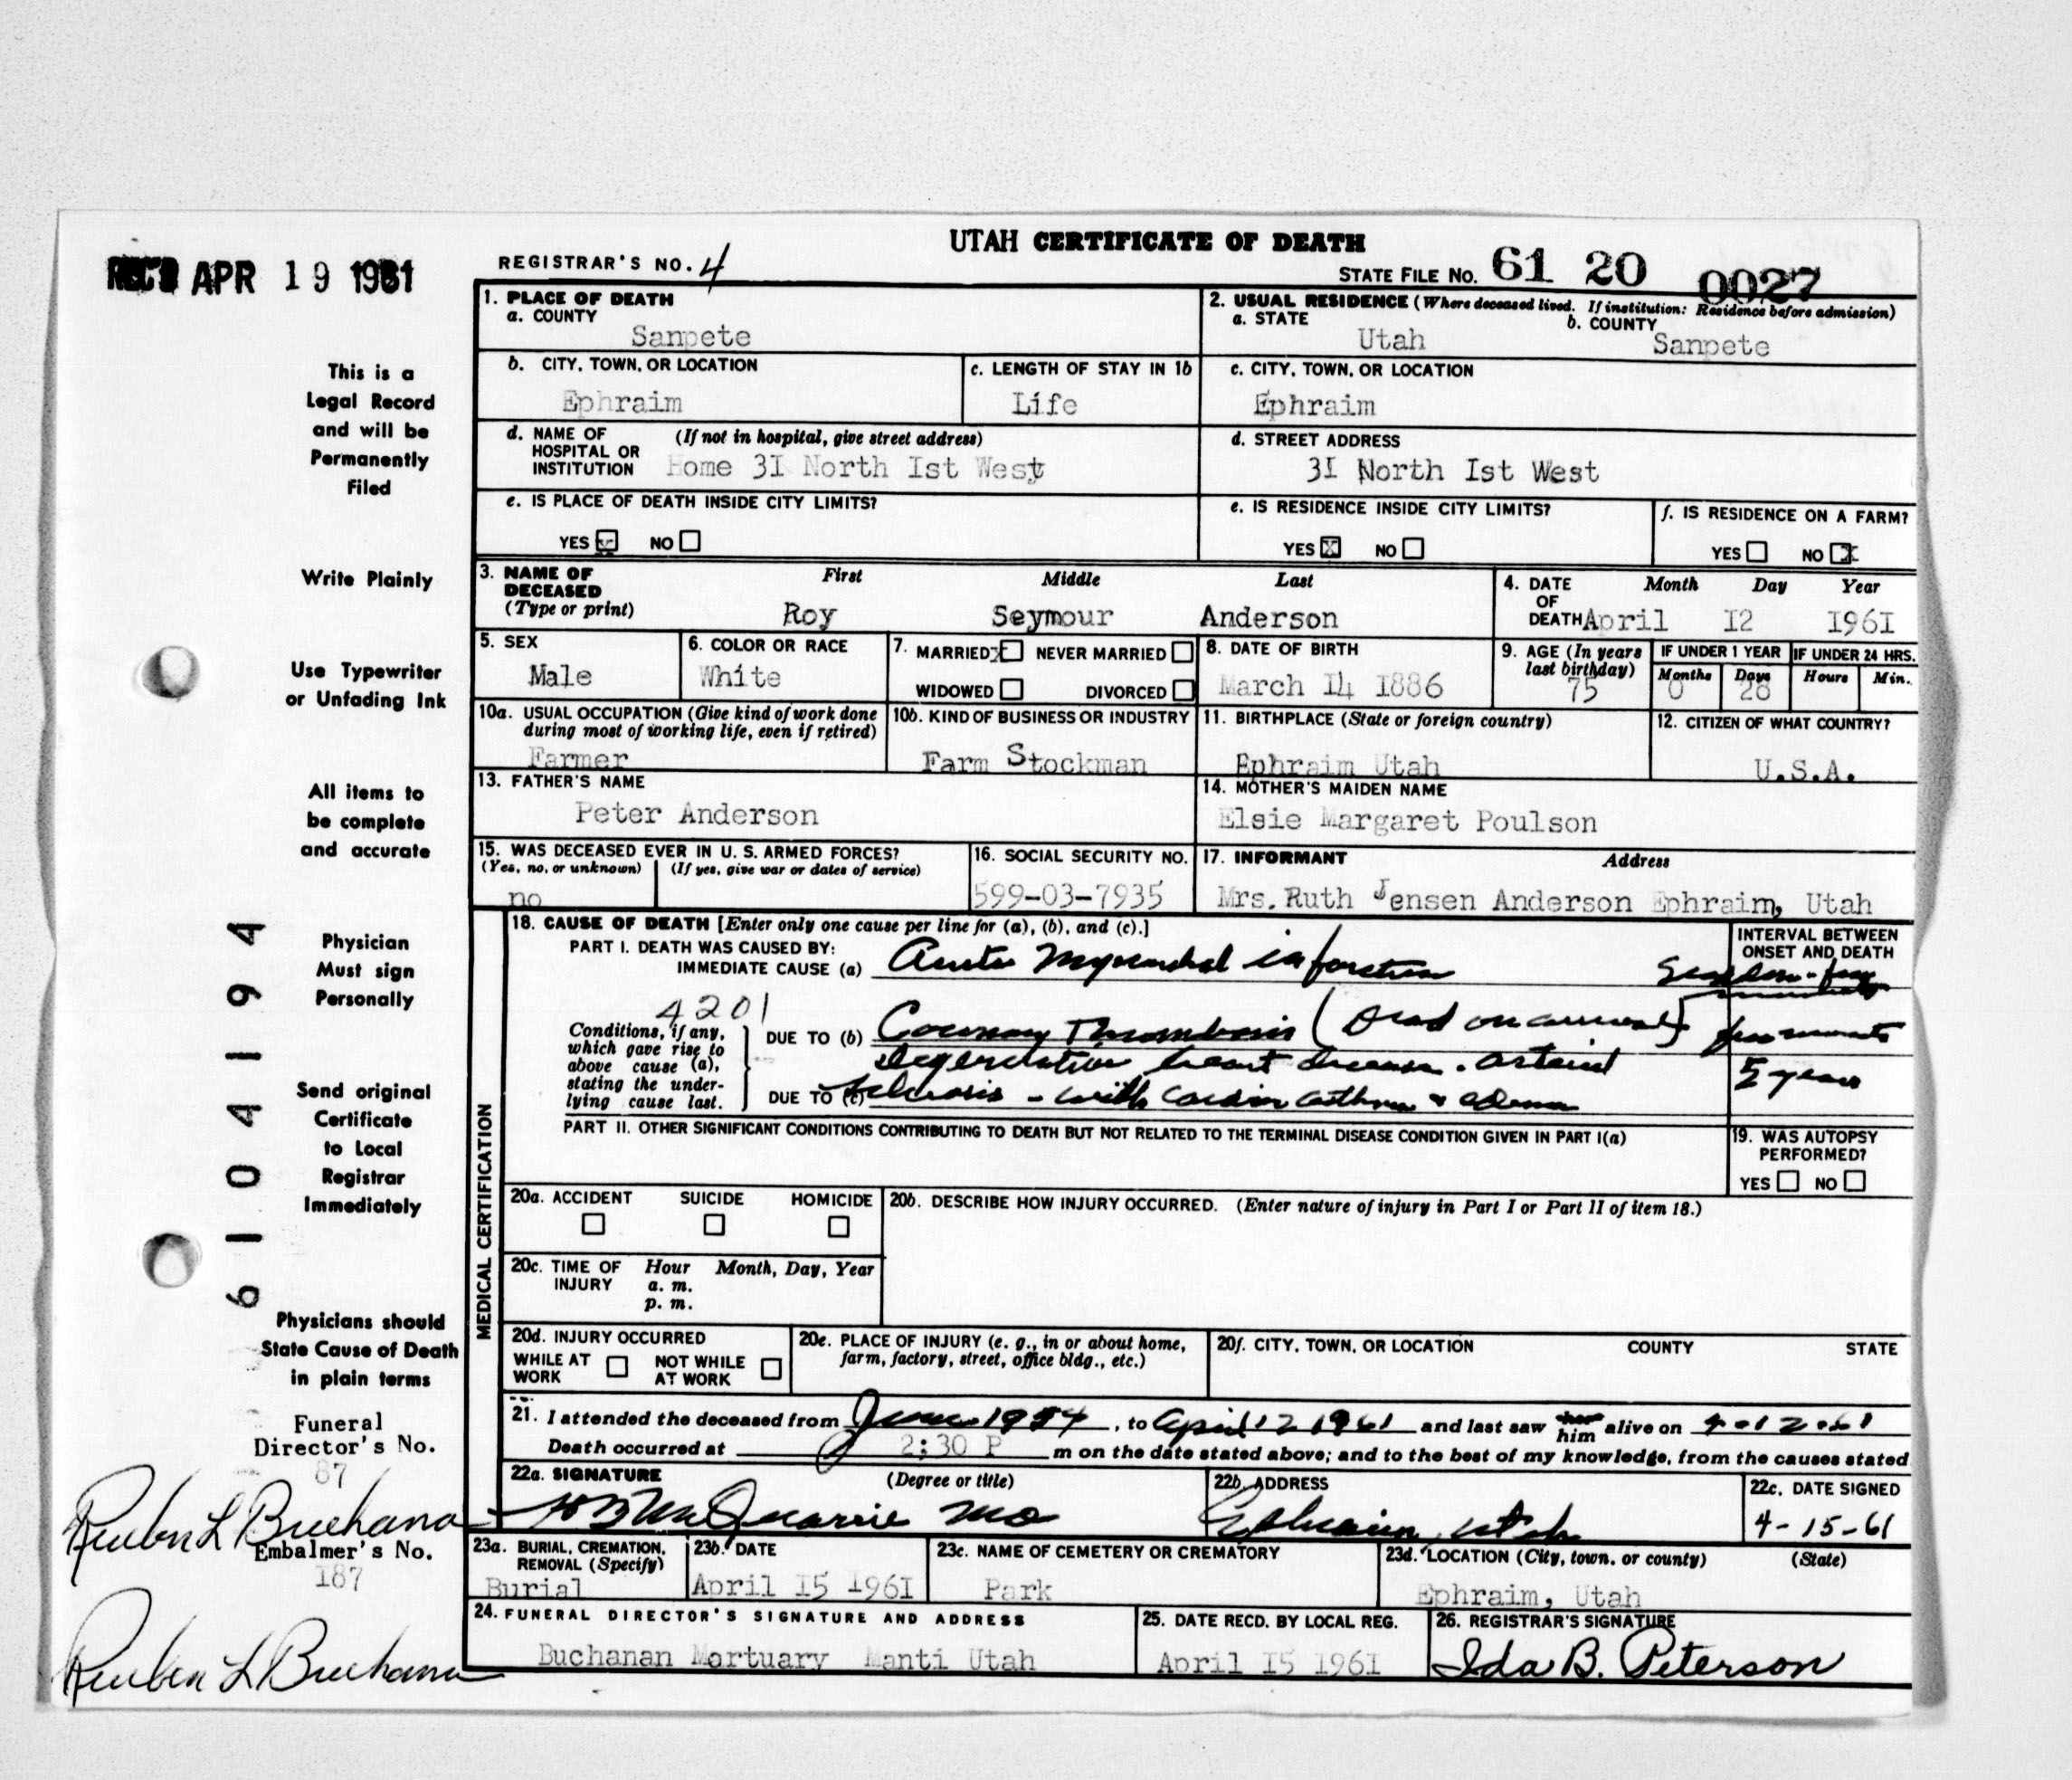 UTAH CERTIFICATE OF DEATH
REC'D APR 19 1961
REGISTRAR'S NO. 4
STATE FILE NO. 61 20 0027
1. PLACE OF DEATH
a. COUNTY
Sanpete
2. USUAL RESIDENCE (Where deceased lived. If institution: Residence before admission)
a. STATE
Utah
b. COUNTY
Sanpete
b. CITY, TOWN, OR LOCATION
Ephraim
c. LENGTH OF STAY IN 1b
Life
c. CITY, TOWN, OR LOCATION
Ephraim
d. NAME OF HOSPITAL OR INSTITUTION
(If not in hospital, give street address)
Home 3I North Ist West
d. STREET ADDRESS
3I North Ist West
e. IS PLACE OF DEATH INSIDE CITY LIMITS?
YES NO
e. IS RESIDENCE INSIDE CITY LIMITS?
YES X NO
f. IS RESIDENCE ON A FARM?
YES NO X
3. NAME OF DECEASED
(Type or print)
First Middle Last
Roy Seymour Anderson
4. DATE OF DEATH
Month Day Year
April I2 I96I
5. SEX
Male
6. COLOR OR RACE
White
7. MARRIED X NEVER MARRIED
WIDOWED DIVORCED
8. DATE OF BIRTH
March I4 I886
9. AGE (In years last birthday)
75
IF UNDER 1 YEAR
Months Days
0 28
IF UNDER 24 HRS.
Hours Min.
10a. USUAL OCCUPATION (Give kind of work done during most of working life, even if retired)
Farmer
10b. KIND OF BUSINESS OR INDUSTRY
Farm Stockman
11. BIRTHPLACE (State or foreign country)
Ephraim Utah
12. CITIZEN OF WHAT COUNTRY?
U.S.A.
13. FATHER'S NAME
Peter Anderson
14. MOTHER'S MAIDEN NAME
Elsie Margaret Poulson
15. WAS DECEASED EVER IN U. S. ARMED FORCES?
(Yes, no, or unknown) (If yes, give war or dates of service)
no
16. SOCIAL SECURITY NO.
599-03-7935
17. INFORMANT Address
Mrs. Ruth Jensen Anderson Ephraim, Utah
MEDICAL CERTIFICATION
18. CAUSE OF DEATH [Enter only one cause per line for (a), (b), and (c).]
INTERVAL BETWEEN ONSET AND DEATH
PART I. DEATH WAS CAUSED BY:
IMMEDIATE CAUSE (a) Acute Myocardial infarction
4201
Conditions, if any, which gave rise to above cause (a), stating the underlying cause last.
DUE TO (b) Coronary Thrombosis (Dead on arrival)
Degenerative heart disease. arterial
5 years
DUE TO (c) sclerosis - with cardiac asthma & edema
PART II. OTHER SIGNIFICANT CONDITIONS CONTRIBUTING TO DEATH BUT NOT RELATED TO THE TERMINAL DISEASE CONDITION GIVEN IN PART I(a)
19. WAS AUTOPSY PERFORMED?
YES NO
20a. ACCIDENT SUICIDE HOMICIDE
20b. DESCRIBE HOW INJURY OCCURRED. (Enter nature of injury in Part I or Part II of item 18.)
20c. TIME OF INJURY
Hour Month, Day, Year
a. m.
p. m.
20d. INJURY OCCURRED
WHILE AT WORK NOT WHILE AT WORK
20e. PLACE OF INJURY (e. g., in or about home, farm, factory, street, office bldg., etc.)
20f. CITY, TOWN, OR LOCATION COUNTY STATE
21. I attended the deceased from June 1954, to April 12 1961 and last saw her him alive on 4-12-61
Death occurred at 2:30 P m on the date stated above; and to the best of my knowledge, from the causes stated
22a. SIGNATURE (Degree or title)
McQuarrie MD
22b. ADDRESS
Ephraim, Utah
22c. DATE SIGNED
4-15-61
23a. BURIAL, CREMATION, REMOVAL (Specify)
Burial
23b. DATE
April I5 I96I
23c. NAME OF CEMETERY OR CREMATORY
Park
23d. LOCATION (City, town, or county) (State)
Ephraim, Utah
24. FUNERAL DIRECTOR'S SIGNATURE AND ADDRESS
Buchanan Mortuary Manti Utah
25. DATE RECD. BY LOCAL REG.
April I5 I96I
26. REGISTRAR'S SIGNATURE
Ida B. Peterson
This is a
Legal Record
and will be
Permanently
Filed
Write Plainly
Use Typewriter
or Unfading Ink
All items to
be complete
and accurate
Physician
Must sign
Personally
Send original
Certificate
to Local
Registrar
Immediately
61041194
Physicians should
State Cause of Death
in plain terms
Funeral
Director's No.
87
Reuben L Buchanan
Embalmer's No.
I87
Reuben L Buchanan